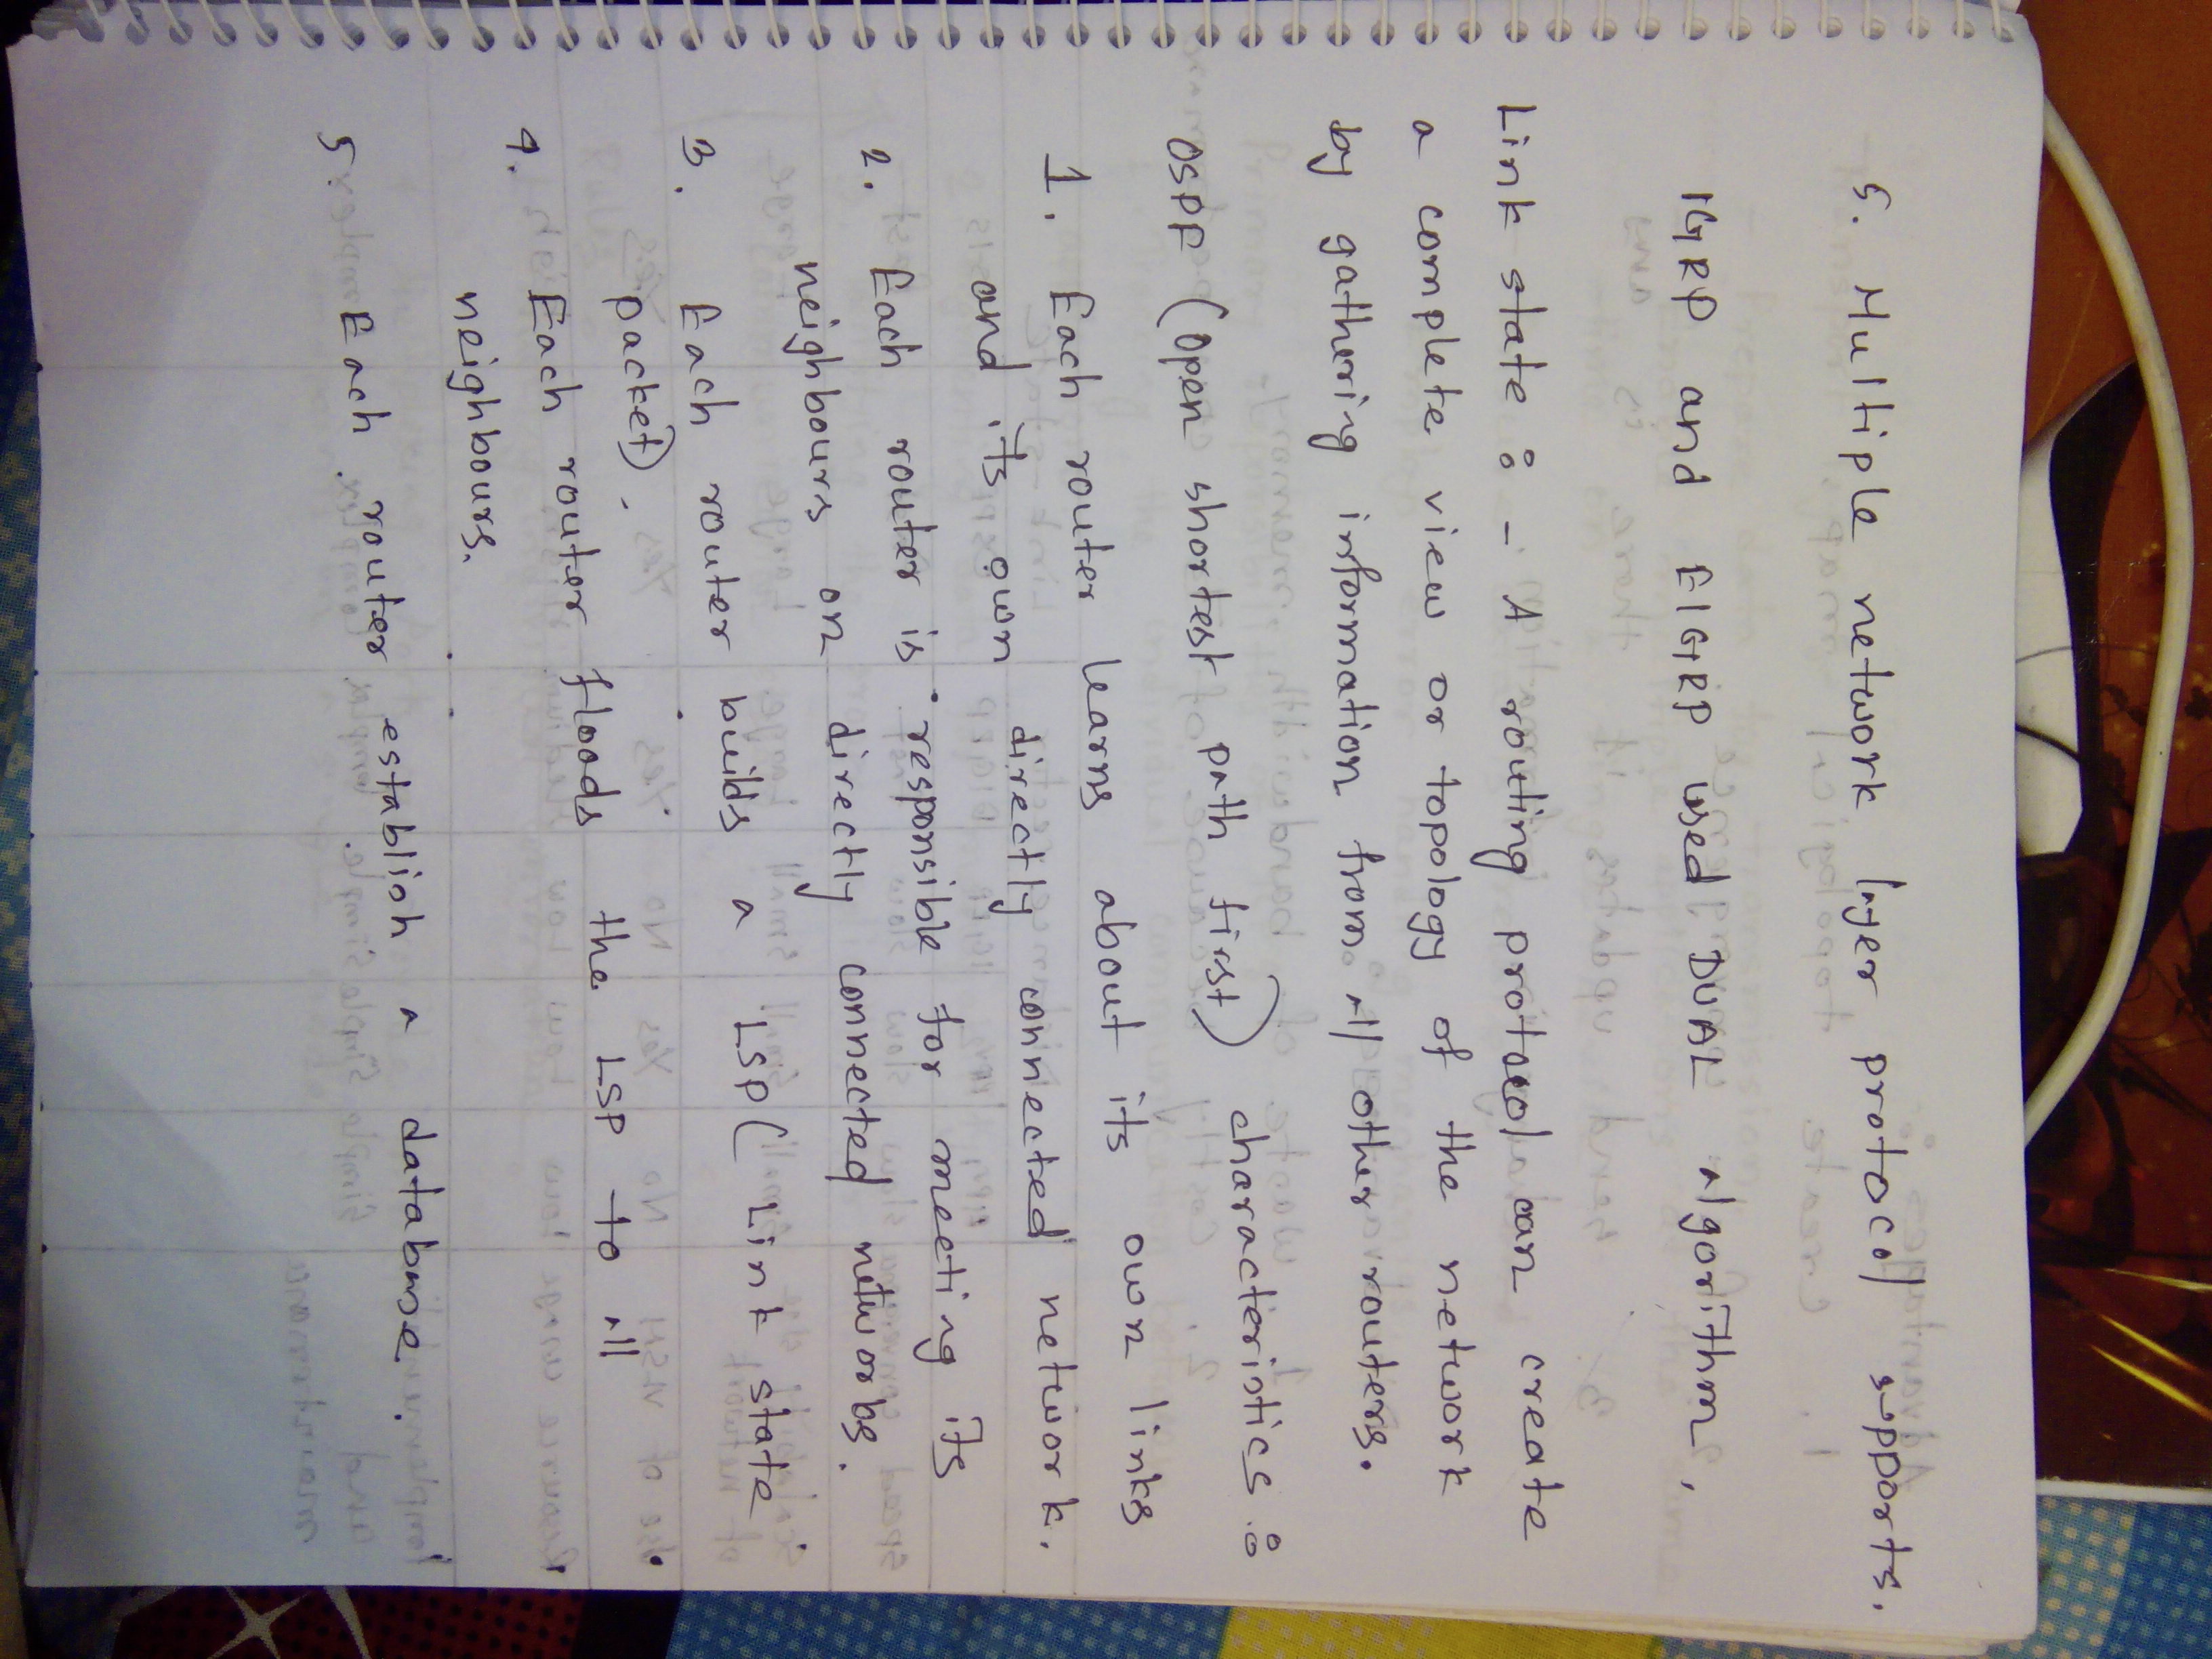 5. Multiple network layer protocol supports.
IGRP and EIGRP used DUAL algorithm,
Link state : - A routing protocol can create
a complete view or topology of the network
by gathering information from all other routers.
OSPF (Open shortest path first) characteristics :
1. Each router learns about its own links
and its own directly connected network.
2. Each router is responsible for meeting its
neighbours on directly connected networks.
3. Each router builds a LSP ( Link state
packet).
4. Each router floods the LSP to all
neighbours.
5. Each router establish a database.